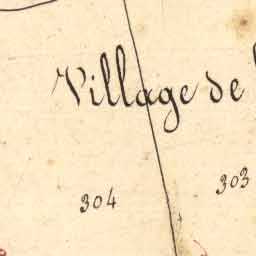 Village de
303
304